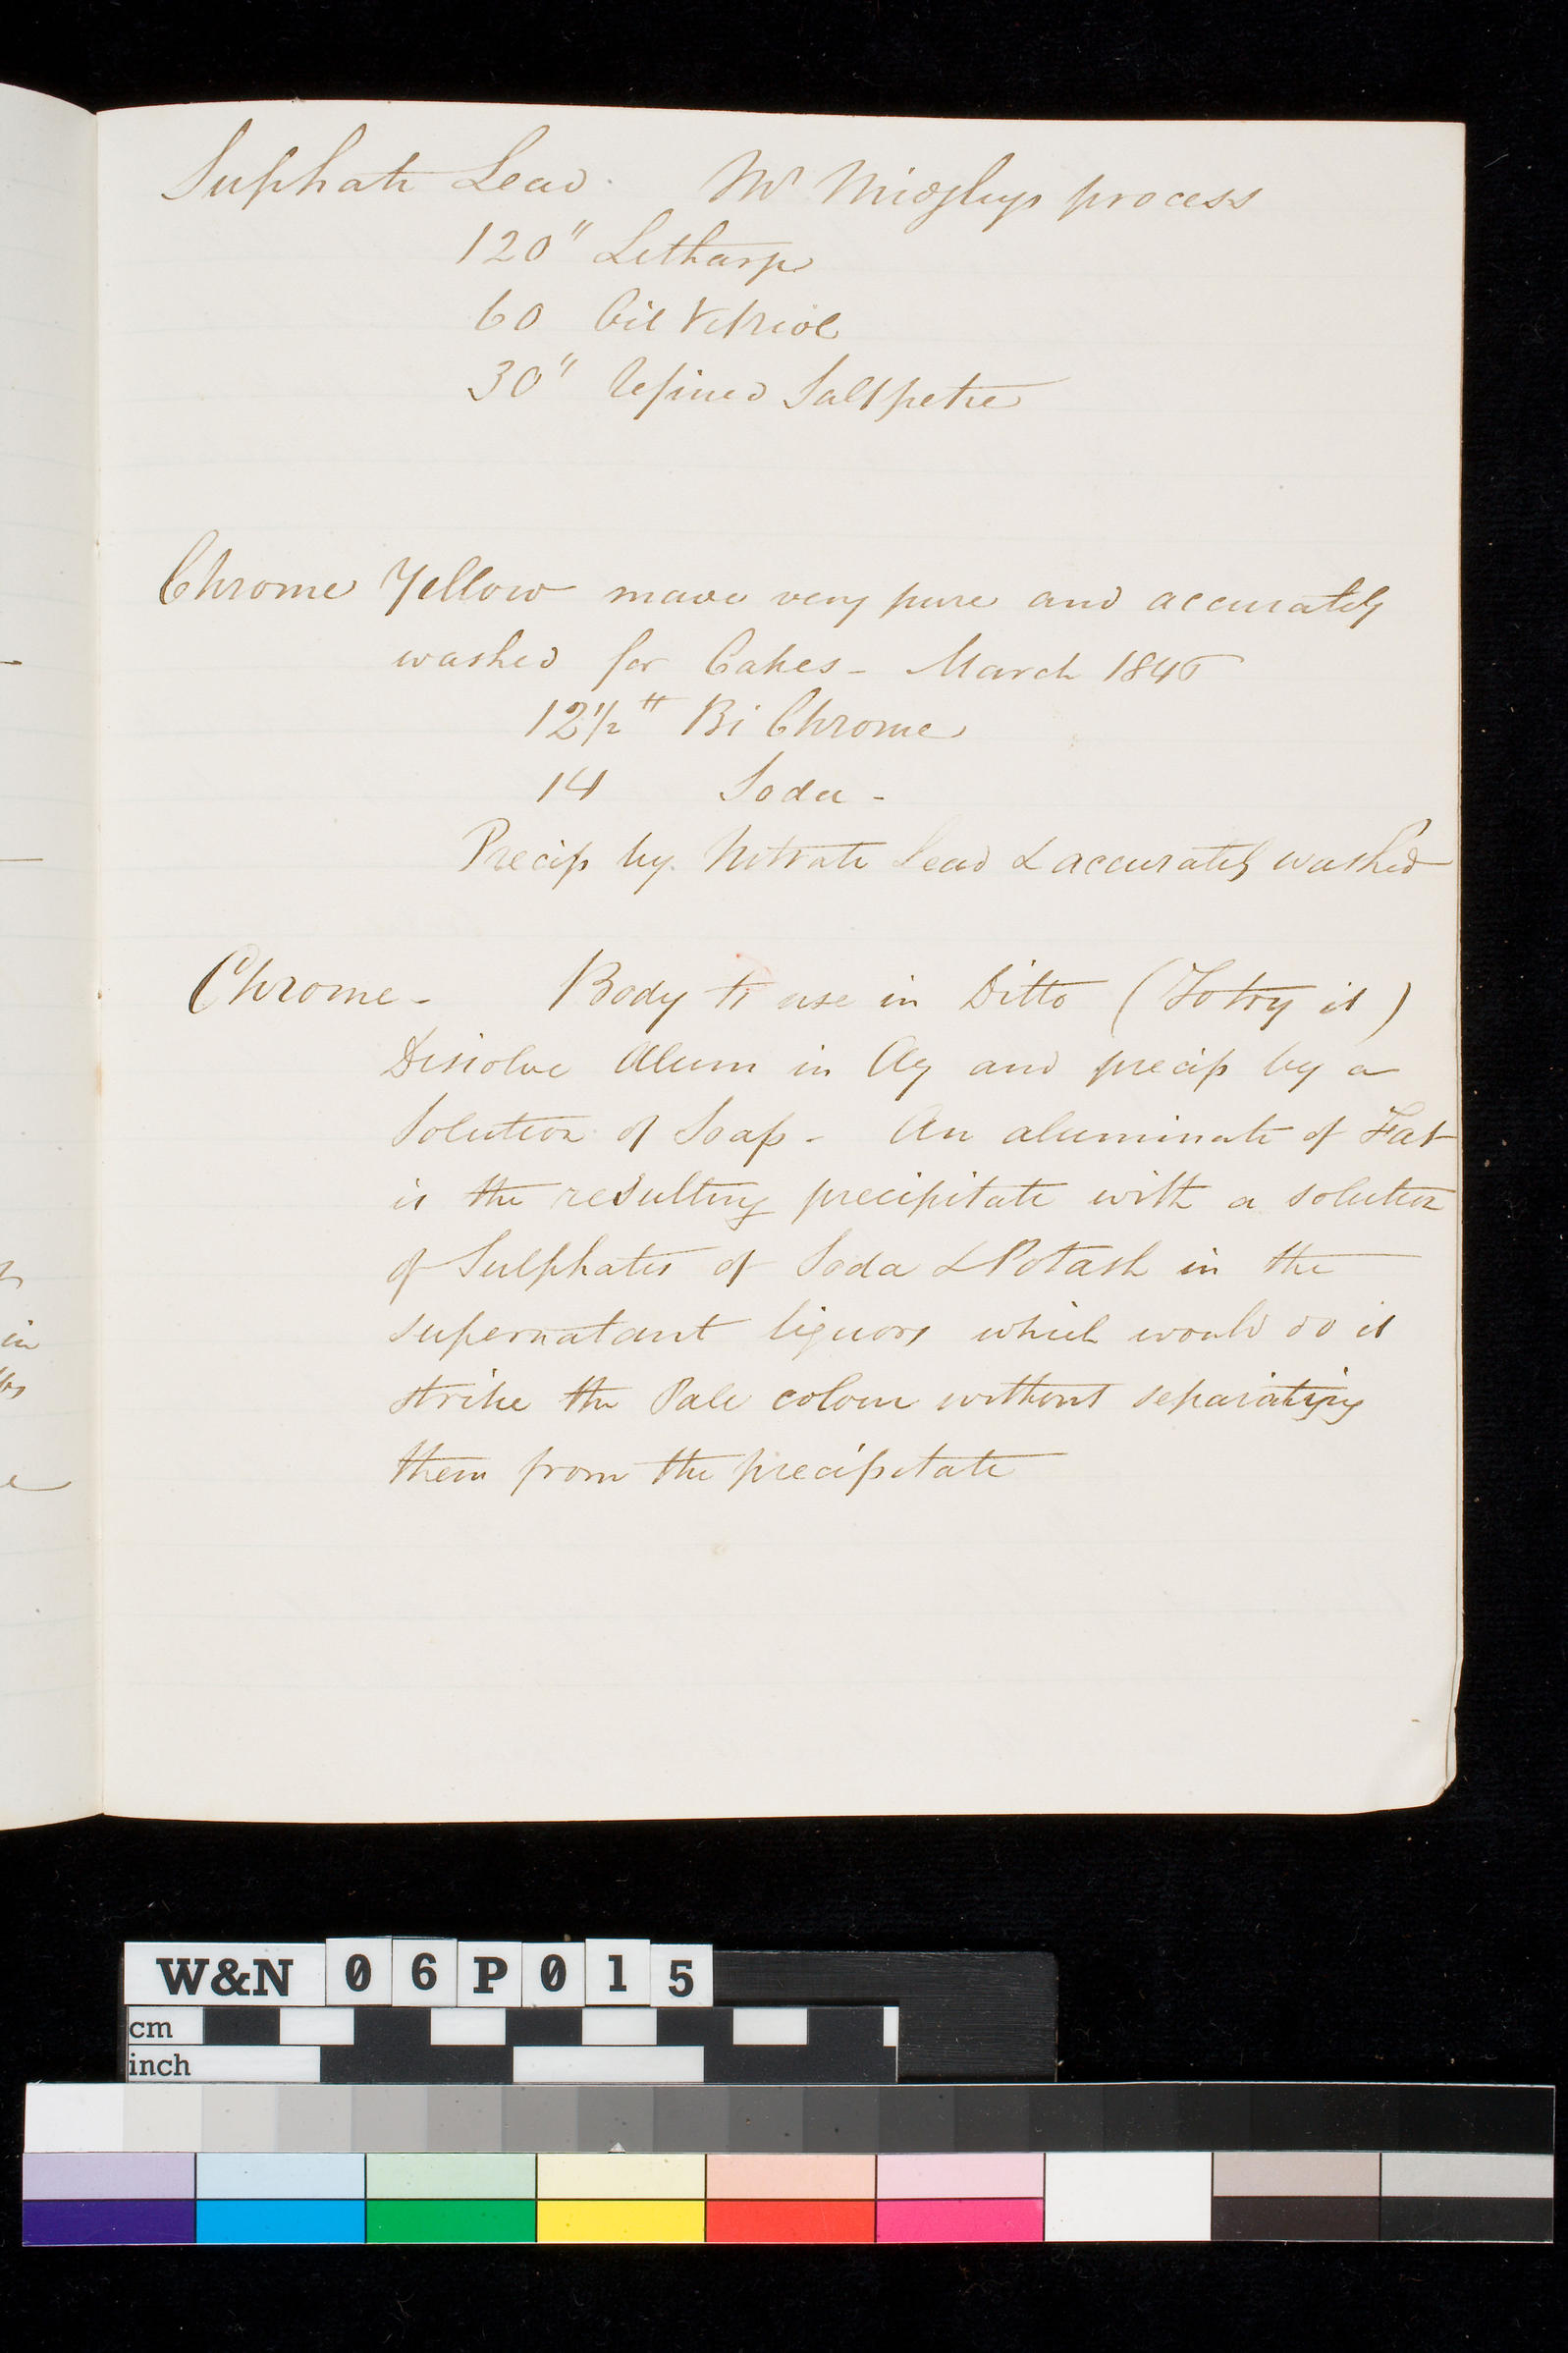 Suphate Lead. Mr Midgleys process
120" Litharge
60 Oil Vitriol
30" refined Saltpetre
Chrome Yellow made very pure and accurately
washed for Cakes - March 1845
12 1/2 " Bi Chrome
14 Soda -
Precip by Nitrate Lead & accurately washed
Chrome - Body to use in Ditto (To try it)
Dissolve Alum in Aq and precip by a
Solution of Soap - An aluminate of Fat
is the resulting precipitate with a solution
of Sulphates of Soda & Potash in the
supernatant liquors which would do it
strike the Pale colour without separating
them from the precipitate
in
W&N 06P015
cm
inch